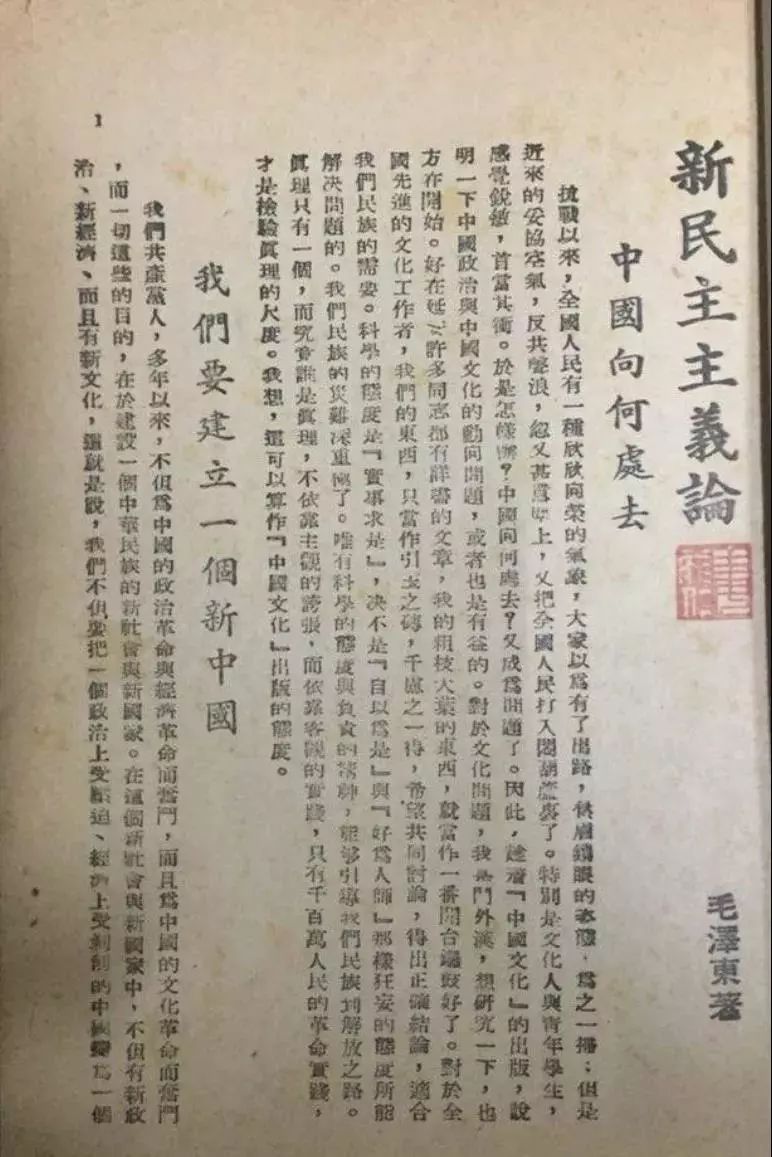 新民主主義論
毛澤東著
中國向何處去
抗戰以來，全國人民有一種欣欣向榮的氣象，大家以爲有了出路，愁眉鎖眼的姿態，爲之一掃；但是
近來的妥協空氣，反共聲浪，忽又甚囂塵上，又把全國人民打入悶葫蘆裏了。特別是文化人與青年學生，
感覺銳敏，首當其衝。於是怎樣辦？中國向何處去？又成爲問題了。因此，趁着『中國文化』的出版，說
明一下中國政治與中國文化的動向問題，或者也是有益的。對於文化問題，我是門外漢，想研究一下，也
方在開始。好在延安許多同志都有詳盡的文章，我的粗枝大葉的東西，就當作一番開台鑼鼓好了。對於全
國先進的文化工作者，我們的東西，只當作引玉之磚，千慮之一得，希望共同討論，得出正確結論，適合
我們民族的需要。科學的態度是『實事求是』，决不是『自以爲是』與『好爲人師』那樣狂妄的態度所能
解决問題的。我們民族的災難深重極了。唯有科學的態度與負責的精神，能够引導我們民族到解放之路。
眞理只有一個，而究竟誰是眞理，不依靠主觀的誇張，而依靠客觀的實踐，只有千百萬人民的革命實踐，
才是檢驗眞理的尺度。我想，這可以算作『中國文化』出版的態度。
我們要建立一個新中國
我們共產黨人，多年以來，不但爲中國的政治革命與經濟革命而奮鬥，而且爲中國的文化革命而奮鬥
，而一切這些的目的，在於建設一個中華民族的新社會與新國家。在這個新社會與新國家中，不但有新政
治、新經濟、而且有新文化，這就是說，我們不但要把一個政治上受壓迫、經濟上受剝削的中國變爲一個
1